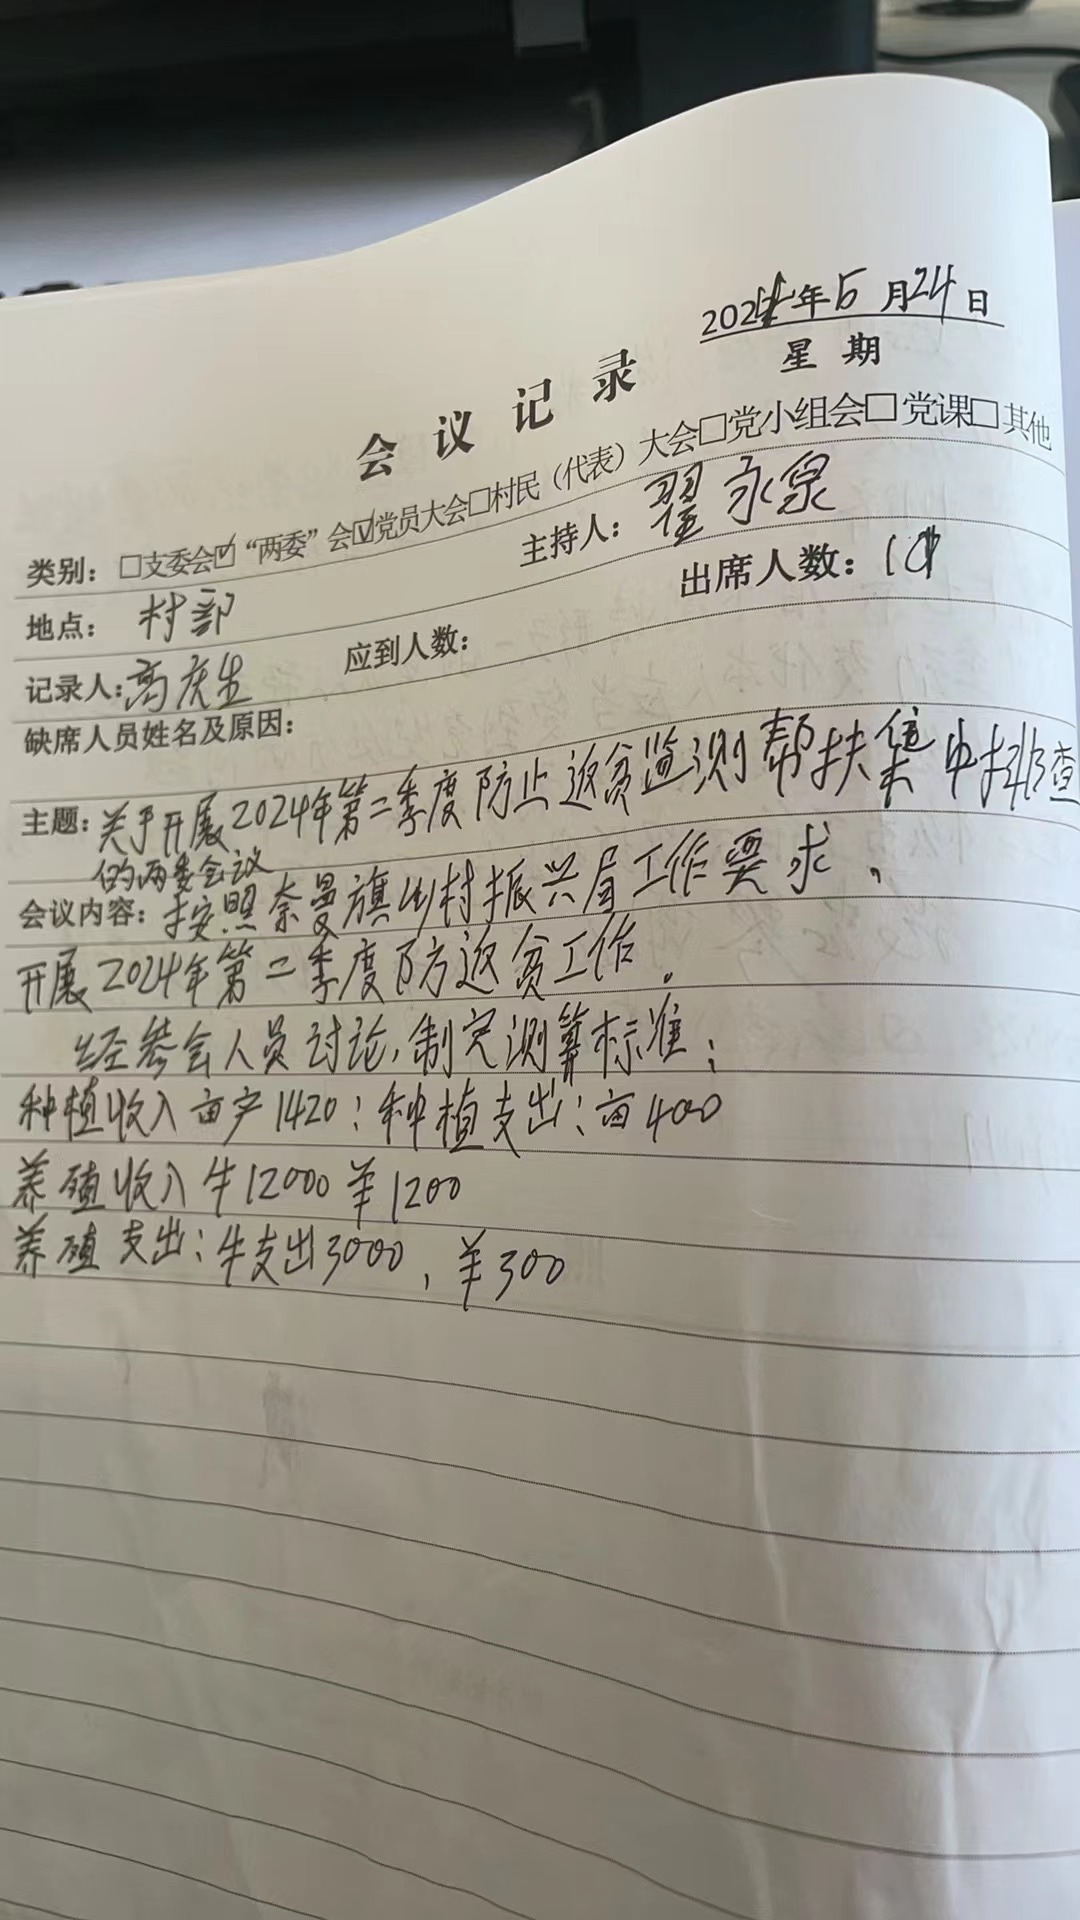 2024年5月24日
星期
会议记录
类别：□支委会☑“两委”会☑党员大会□村民（代表）大会□党小组会□党课□其他
地点：村部 主持人：翟永泉
记录人：高庆生 应到人数： 出席人数：
缺席人员姓名及原因：
主题：关于开展2024年第二季度防止返贫监测帮扶集中排查
的两委会议
会议内容：按照奈曼旗乡村振兴局工作要求，
开展2024年第二季度防返贫工作。
经参会人员讨论，制定测算标准：
种植收入亩产1420；种植支出：亩400
养殖收入牛12000 羊1200
养殖支出：牛支出3000，羊300